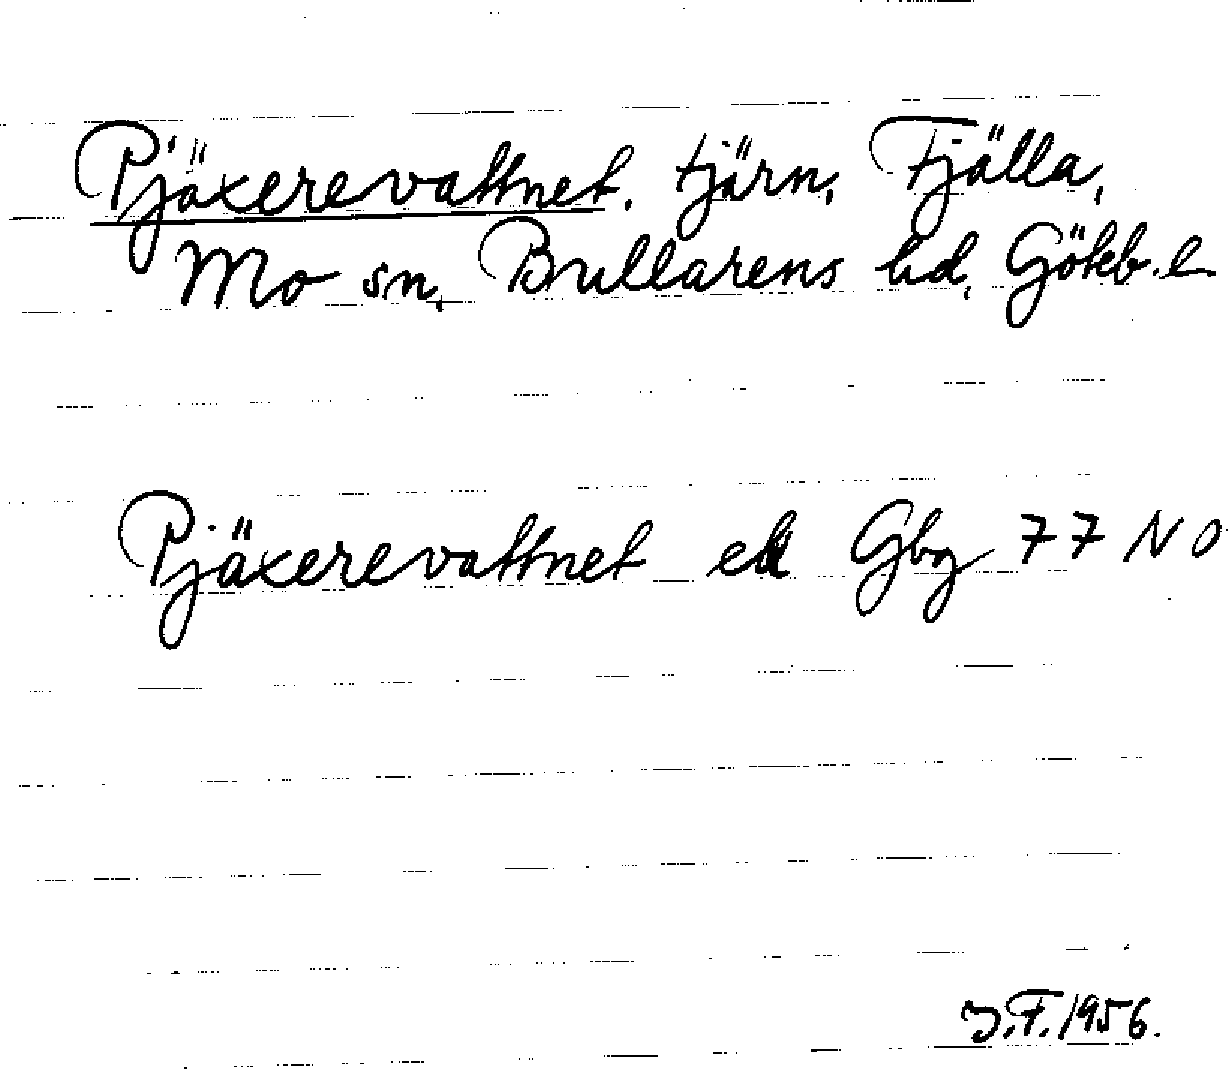 Pjäxerevattnet, tjärn, Fjälla,
Mo sn, Bullarens hd, Göteb. l
Pjäxerevattnet ek Gbg 77 NO
J.F. 1956.